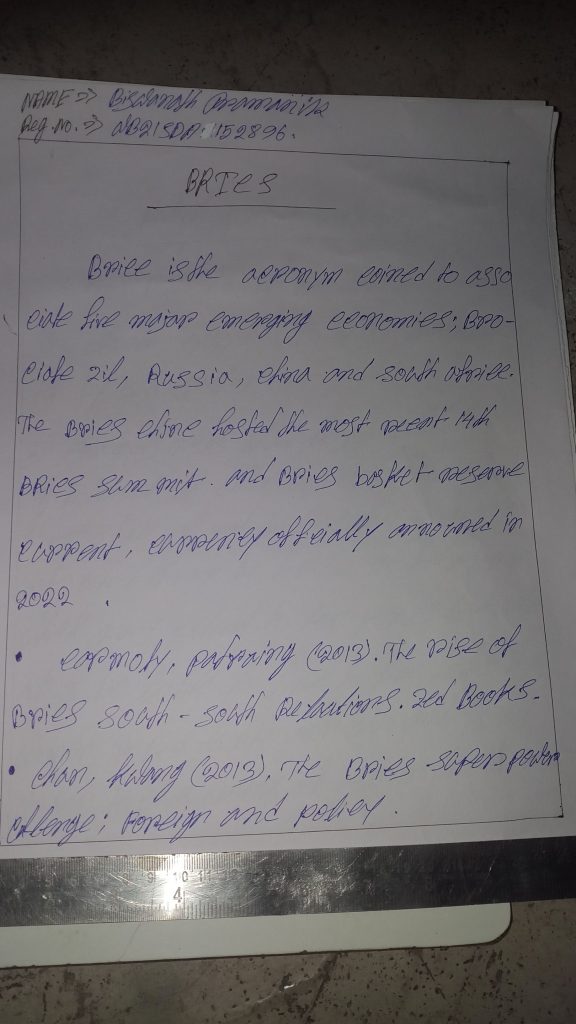 NAME => Biswanath Pramanik
Reg. No. => NB21SDP 1152896.
BRICS
Brice is the acronym coined to asso
ciate five major emerging economies; Bra-
ciate zil, Russia, china and south africe.
The Brics chine hosted the most recent 14th
BRics summit. and Brics basket reserve
current, currency officially announced in
2022.
• (2013). The rise of
Brics south - south Relations. Zed Books.
• Chan, Kwang (2013). The Brics superpower
: Foreign and policy.
9 10 11
4